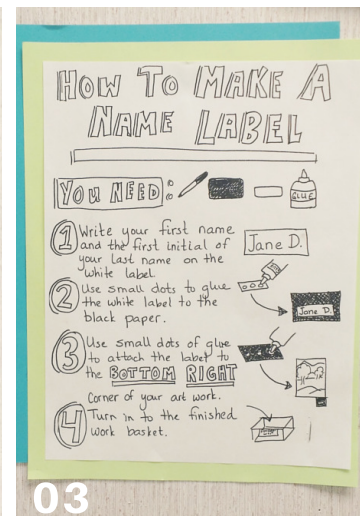 HOW TO MAKE A
NAME LABEL
YOU NEED:
GLUE
1 Write your first name
and the first initial of
your last name on the
white label.
Jane D.
2 Use small dots to glue
the white label to the
black paper.
Jane D.
3 Use small dots of glue
to attach the label to
the BOTTOM RIGHT
Corner of your art work.
4 Turn in to the finished
work basket.
03